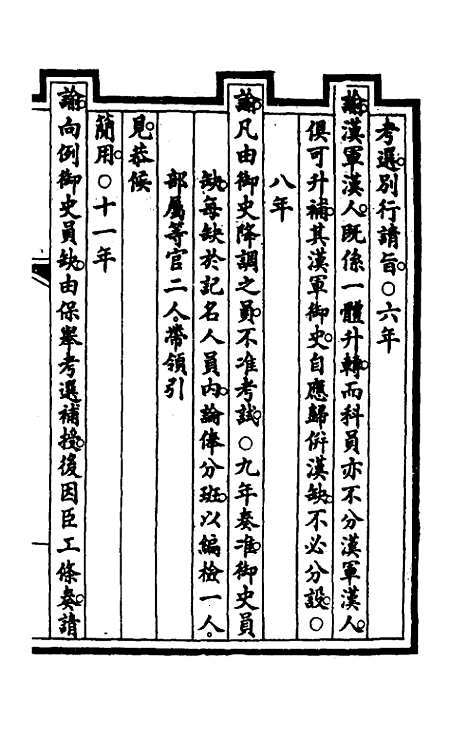 考選。別行請旨。○六年
諭漢軍漢人。既係一體升轉。而科員亦不分漢軍漢人。
俱可升補。其漢軍御史。自應歸併漢缺。不必分設。○
八年
諭凡由御史降調之員。不准考試。○九年奏准。御史員
缺。每缺於記名人員內。論俸分班。以編檢一人。
部屬等官二人。帶領引
見。恭候
簡用。○十一年
諭向例御史員缺。由保舉考選補授。後因臣工條奏。請